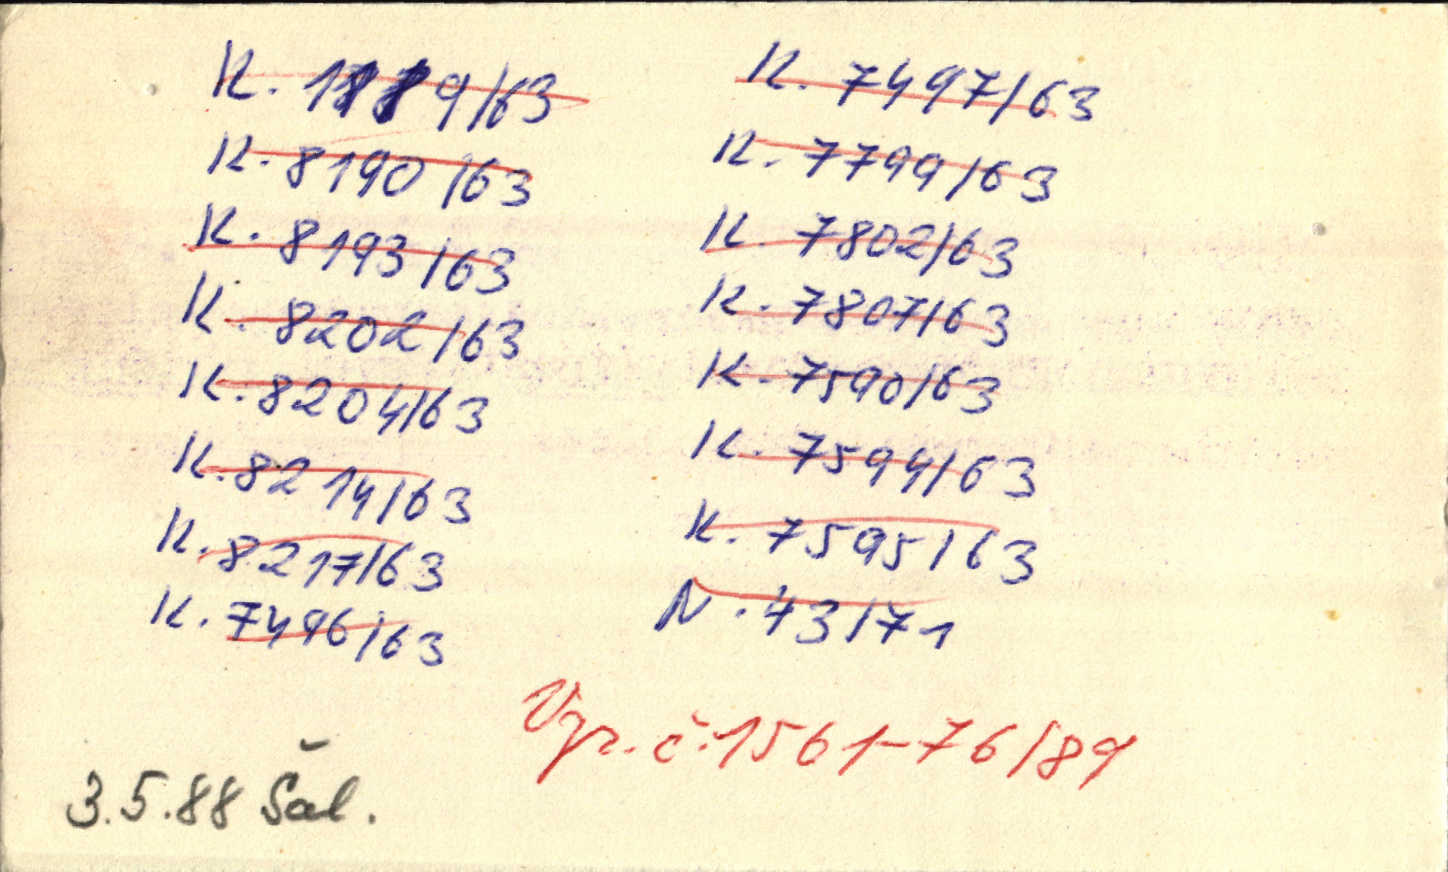 K. 8190/63
K. 8193/63
K. 8202/63
K. 8204/63
K. 8214/63
K. 8217/63
K. 7496/63
K. 7497/63
K. 7799/63
K. 7802/63
K. 7807/63
K. 7590/63
K. 7594/63
K. 7595/63
N. 43/71
Vyr. č. 1561-76/89
3.5.88 Šál.